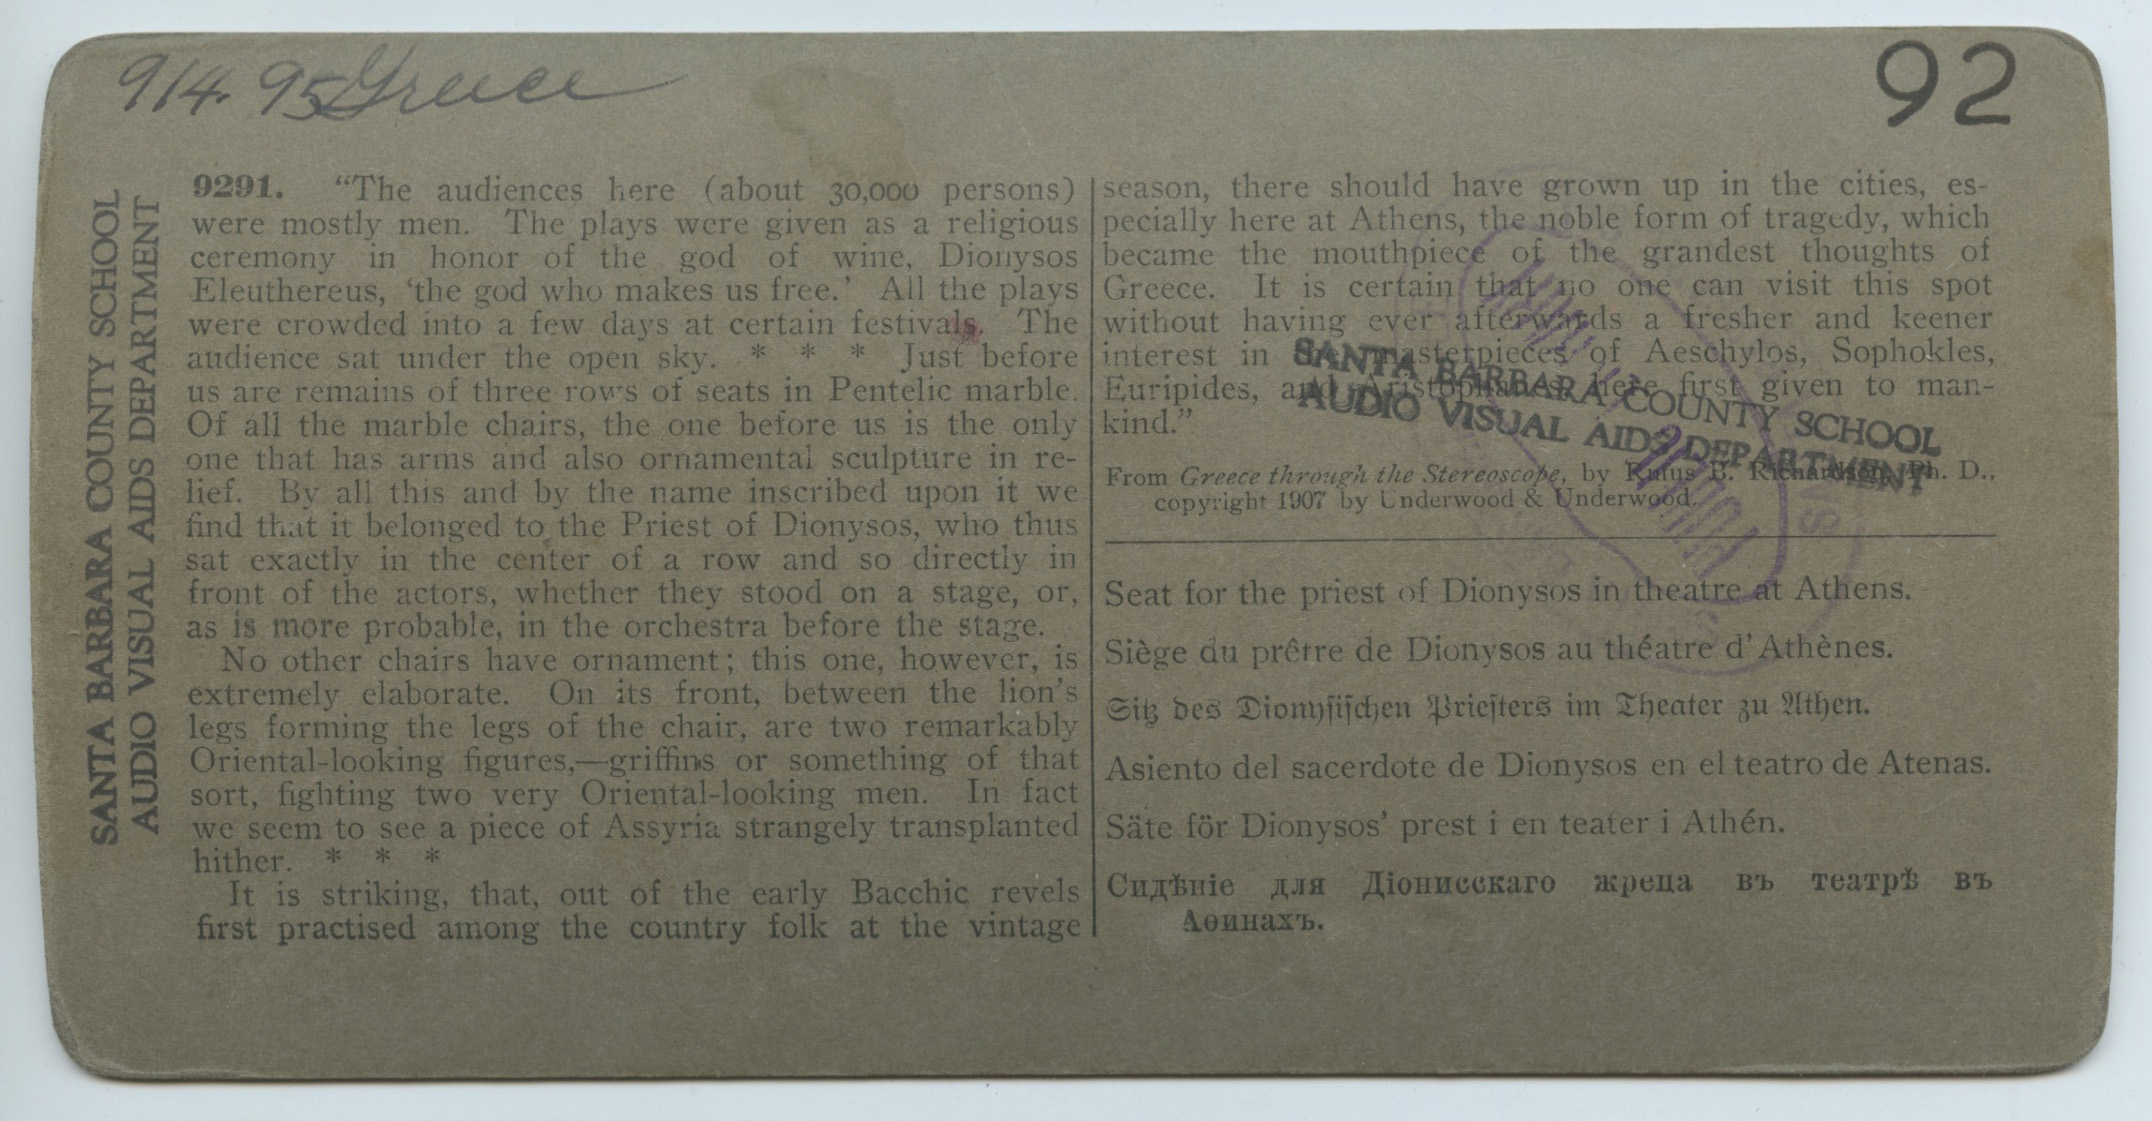 914.95 Greece
92
SANTA BARBARA COUNTY SCHOOL
AUDIO VISUAL AIDS DEPARTMENT
9291. “The audiences here (about 30,000 persons)
were mostly men. The plays were given as a religious
ceremony in honor of the god of wine, Dionysos
Eleuthereus, ‘the god who makes us free.’ All the plays
were crowded into a few days at certain festivals. The
audience sat under the open sky. * * * Just before
us are remains of three rows of seats in Pentelic marble.
Of all the marble chairs, the one before us is the only
one that has arms and also ornamental sculpture in re-
lief. By all this and by the name inscribed upon it we
find that it belonged to the Priest of Dionysos, who thus
sat exactly in the center of a row and so directly in
front of the actors, whether they stood on a stage, or,
as is more probable, in the orchestra before the stage.
No other chairs have ornament; this one, however, is
extremely elaborate. On its front, between the lion’s
legs forming the legs of the chair, are two remarkably
Oriental-looking figures,—griffins or something of that
sort, fighting two very Oriental-looking men. In fact
we seem to see a piece of Assyria strangely transplanted
hither. * * *
It is striking, that, out of the early Bacchic revels
first practised among the country folk at the vintage
season, there should have grown up in the cities, es-
pecially here at Athens, the noble form of tragedy, which
became the mouthpiece of the grandest thoughts of
Greece. It is certain that no one can visit this spot
without having ever afterwards a fresher and keener
interest in the masterpieces of Aeschylos, Sophokles,
Euripides, and Aristophanes here first given to man-
kind.”
SANTA BARBARA COUNTY SCHOOL
AUDIO VISUAL AIDS DEPARTMENT
From Greece through the Stereoscope, by Rufus B. Richardson, Ph. D.,
copyright 1907 by Underwood & Underwood.
Seat for the priest of Dionysos in theatre at Athens.
Siège du prêtre de Dionysos au théatre d’Athènes.
Sitz des Dionysischen Priesters im Theater zu Athen.
Asiento del sacerdote de Dionysos en el teatro de Atenas.
Säte för Dionysos’ prest i en teater i Athén.
Сидѣніе для Діонисскаго жреца въ театрѣ въ
Аѳинахъ.